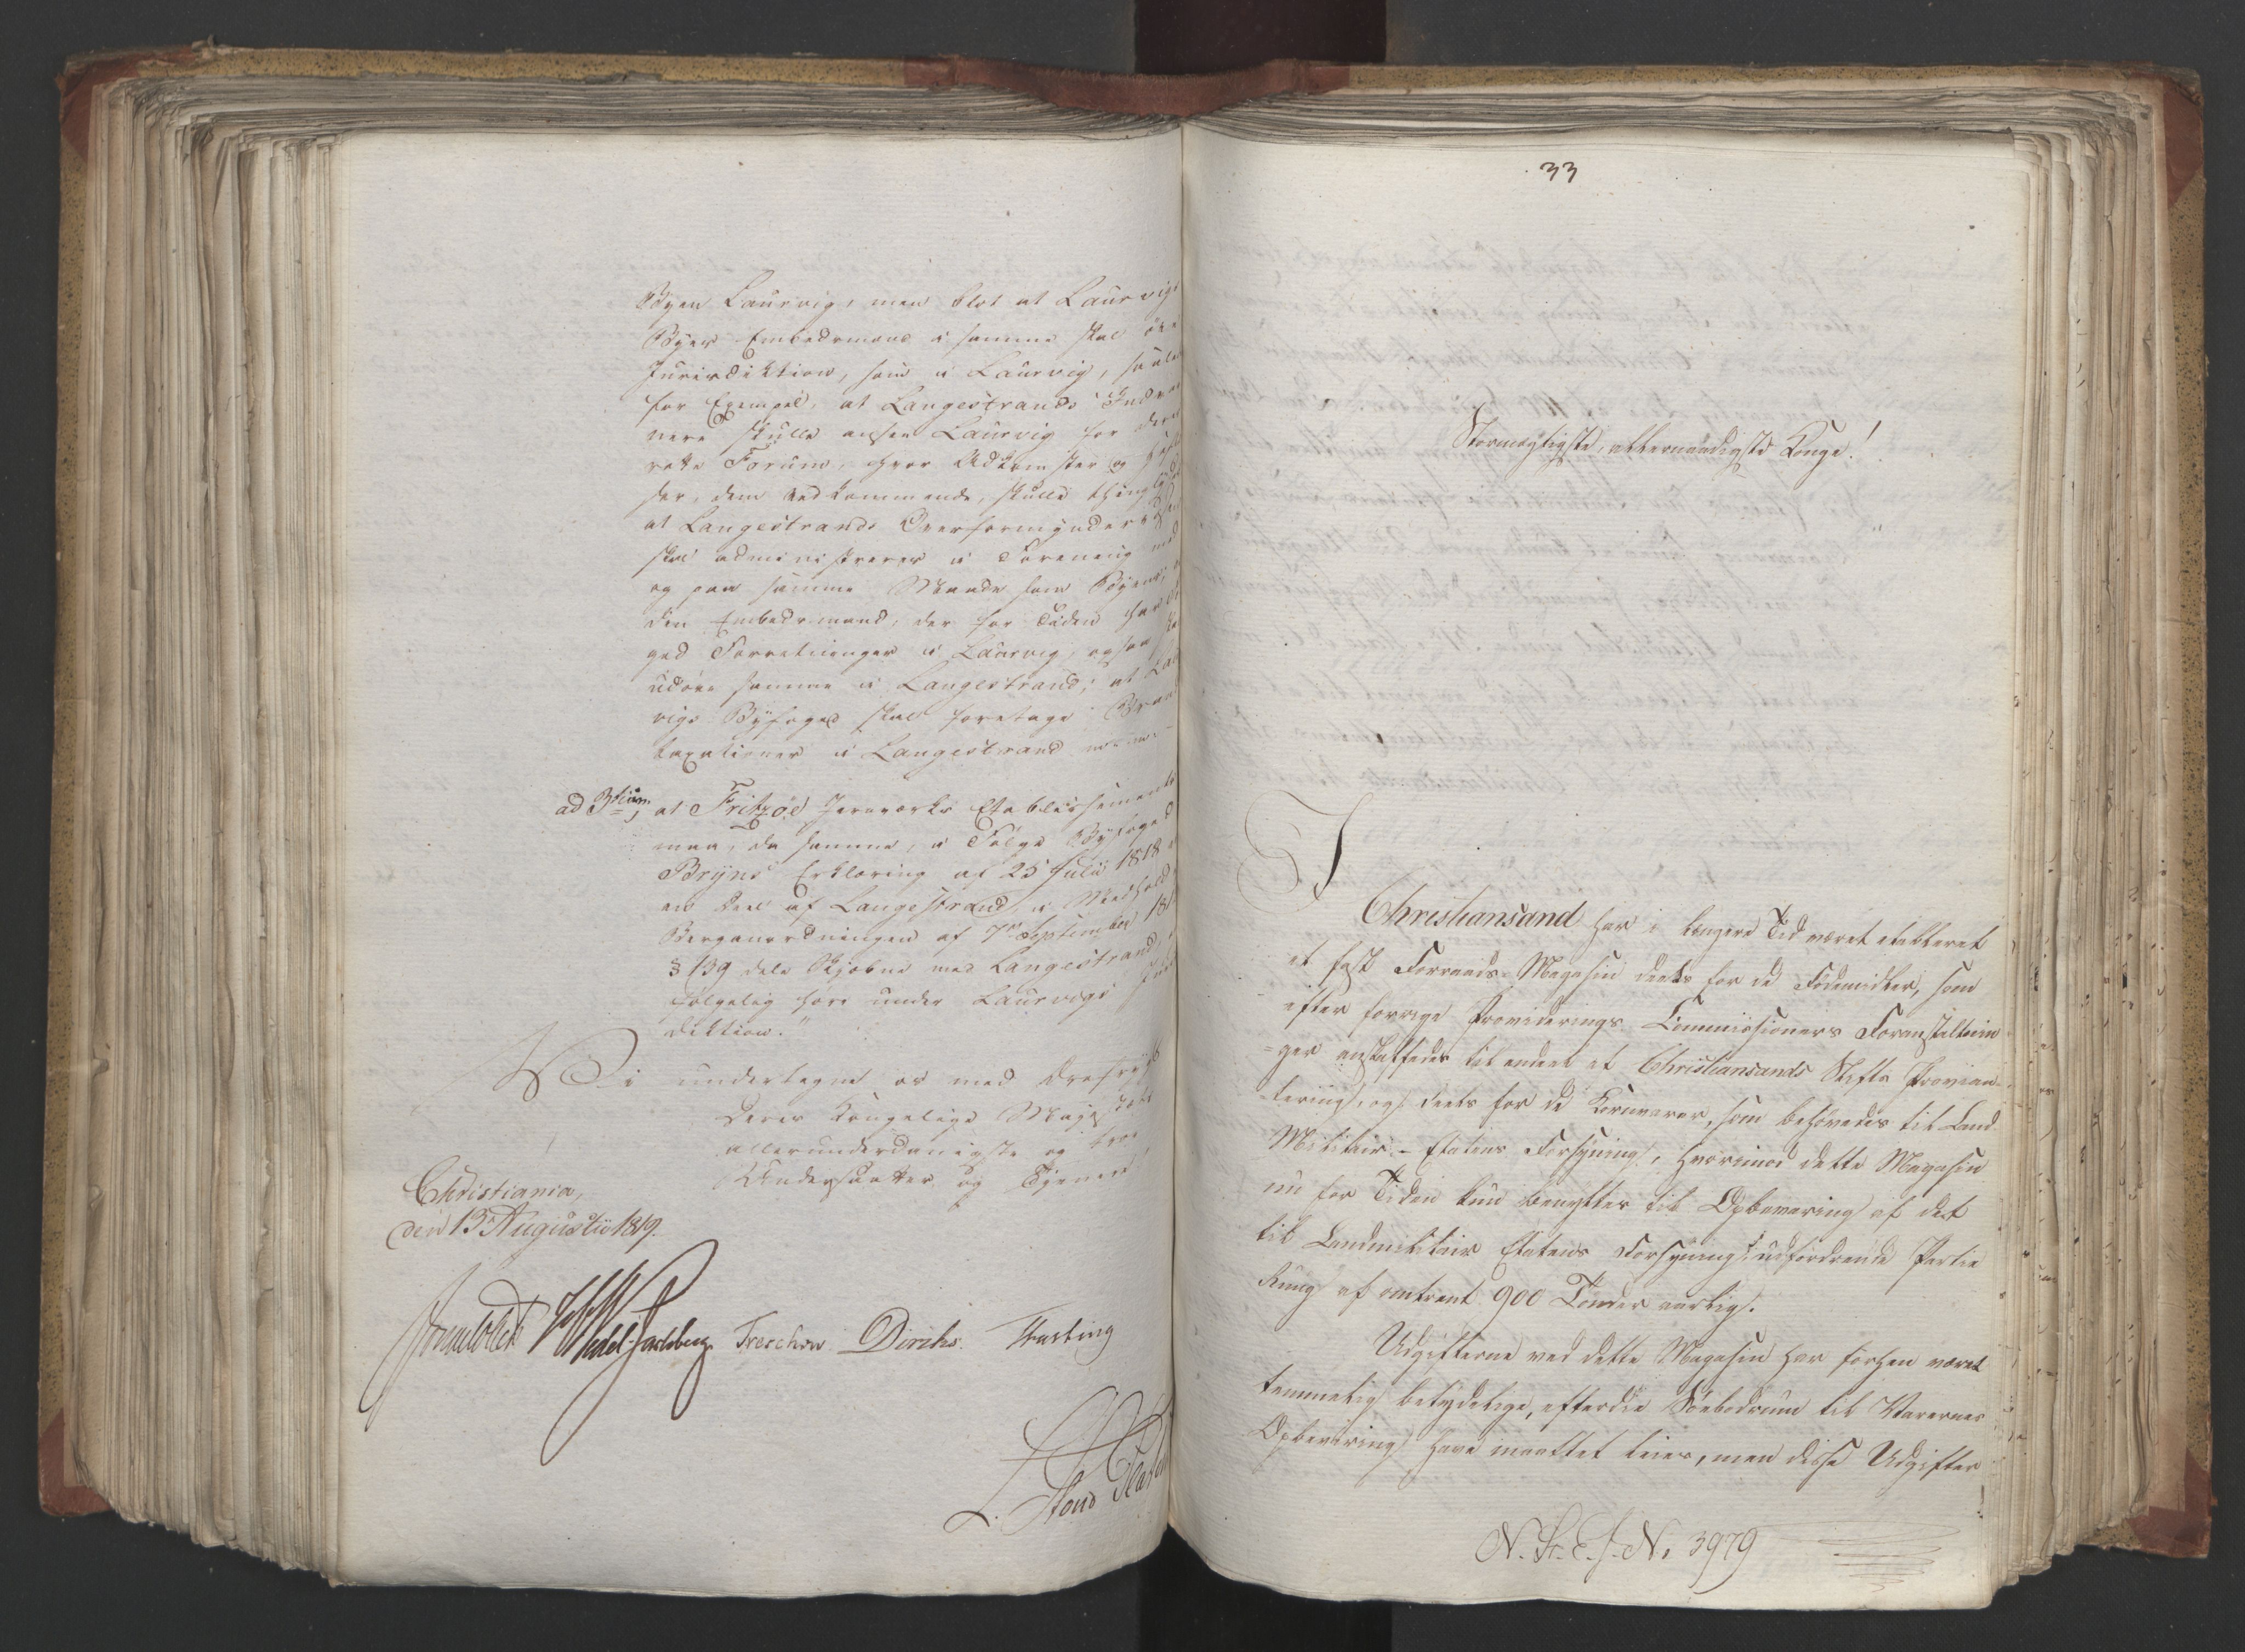 Byen Laurvig, men blot at Laurvigs
Byes Embedsmænd i samme skal öve
Jurisdiktion, som i Laurvig, saaledes
for Exempel, at Langestrands Indvaa
nere skulle ansee Laurvig for deres
rette Forum, hvor Adkomster og
der, dem vedkommende, skulle thinglyses
at Langestrands Overformynderie
skal administreres i Forening med
og paa samme Maade som Byens,
den Embedsmand, der for Tiden har
ged Forretninger i Laurvig, ogsaa skal
udöve samme i Langestrand; at Laur
vigs Byfoged skal foretage Brand
taxationer i Langestrand m. m. -
ad 3tium, at Fritzöe Jernværks Etablissementer
maa, da samme, i Fölge Byfoged
Bryns Erklæring af 25 Julii 1818 er
en Deel af Langestrand, i Medhold af
Berganordningen af 7de September 1812
§ 139 dele Skjæbne med Langestrand,
fölgelig höre under Laurvigs Juris
diktion."
Vi undertegne os med Dröfryft
Deres Kongelige Majestæts
allerunderdanigste og troe
Undersaatter og Tjenere
Christiania,
den 13de Augustii 1819.
Sommelhielm Wedel-Jarlsberg Treschow Dirichs. Hasting
L. Stoud Platou
33
Stormægtigste, allernaadigste Konge!
I
Christiansand har i længere Tid været etableret
et fast Forraads-Magasin deels for de Födemidler, som
efter forrige Provideerings Commissioners Foranstaltnin
=ger anskaffedes til endeel af Christiansands Stifts Provian-
tering, og deels for de Kornvarer, som behövedes til Land
Militair-Etatens Forsyning, hvorimod dette Magasin
nu for Tiden kun benyttes til Opbevaring af det
til Landmilitair Etatens Forsyning udfordrende Partie
Rug af omtrent 900 Tönder aarlig.
Udgifterne ved dette Magasin har forhen været
temmelig betydelige, efterdie Söeboderum til Varernes
Opbevaring have maattet leies, men disse Udgifter
N. St. E. J. N. 3979